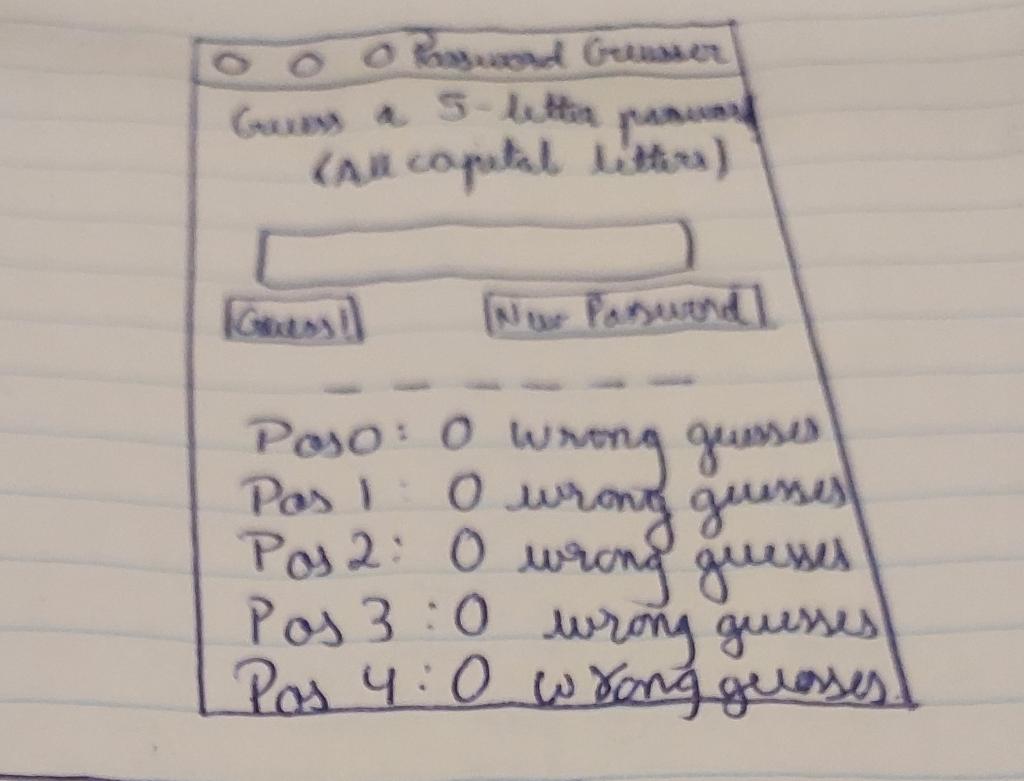 Password Guesser
Guess a 5-letter password
(All capital letters)
Guess!
New Password
Pos 0: 0 wrong guesses
Pos 1: 0 wrong guesses
Pos 2: 0 wrong guesses
Pos 3: 0 wrong guesses
Pos 4: 0 wrong guesses